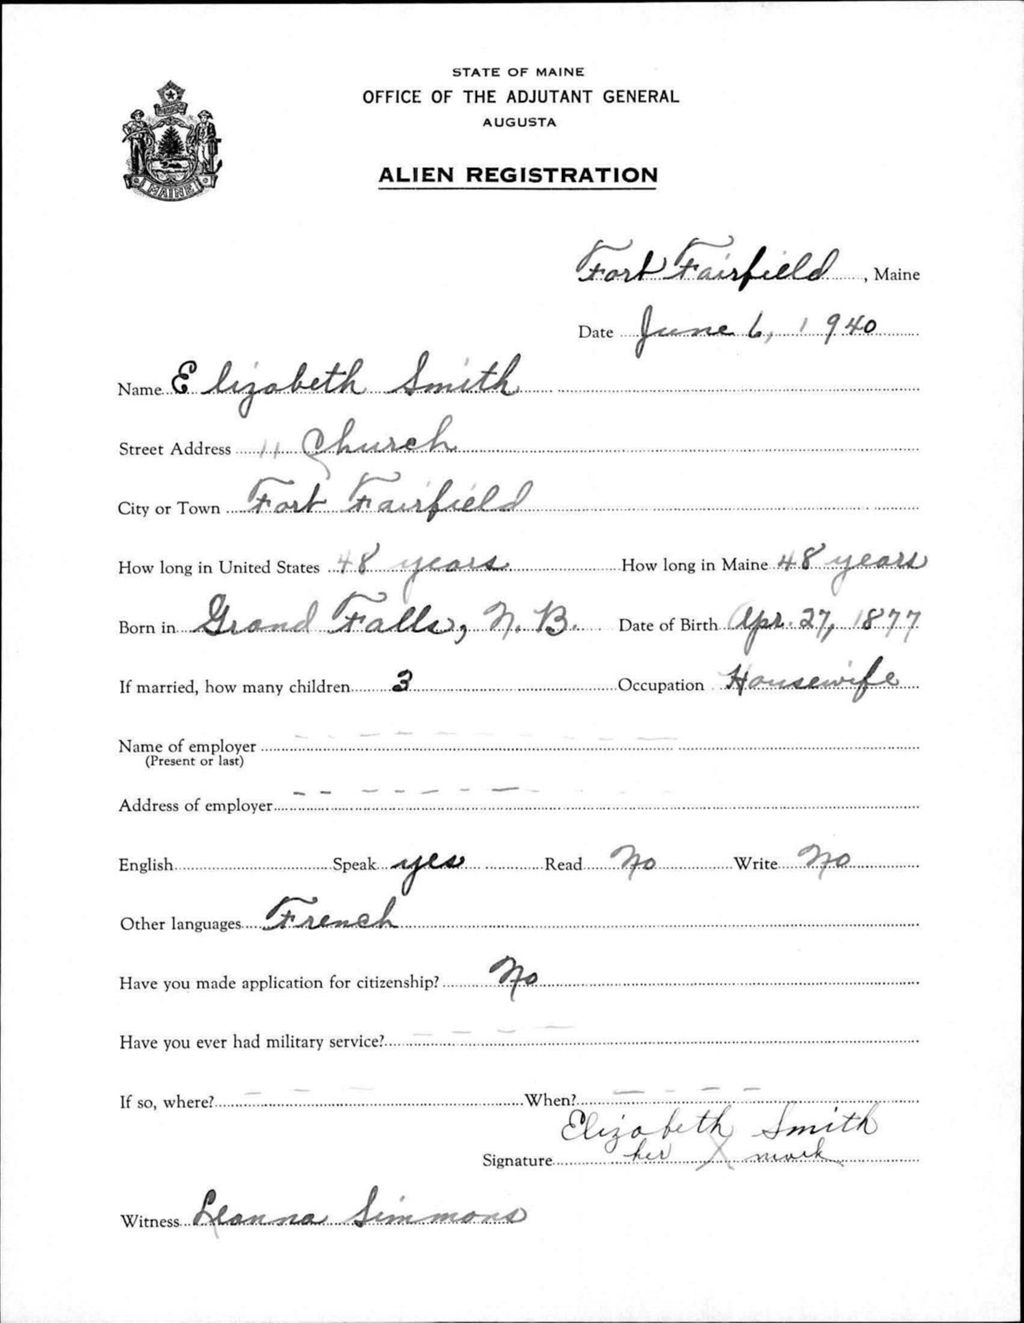 STATE OF MAINE
OFFICE OF THE ADJUTANT GENERAL
AUGUSTA
ALIEN REGISTRATION
MAINE
Fort Fairfield, Maine
Date June 6, 1940
Name Elizabeth Smith
Street Address 11 Church
City or Town Fort Fairfield
How long in United States 48 years How long in Maine 48 years
Born in Grand Falls, N.B. Date of Birth Apr. 27, 1877
If married, how many children 3 Occupation Housewife
Name of employer
(Present or last)
Address of employer
English Speak yes Read No Write No
Other languages French
Have you made application for citizenship? No
Have you ever had military service?
If so, where? When?
Elizabeth Smith
Signature her X mark
Witness Leanna Simmons